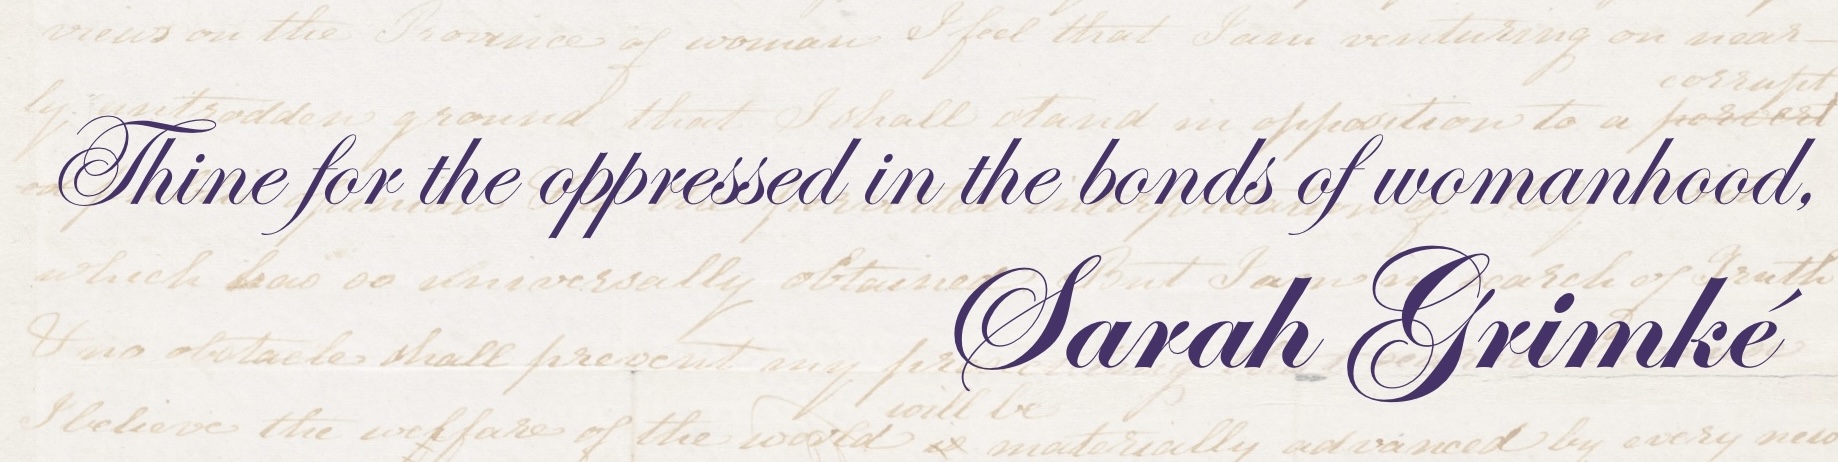 views on the Province of woman I feel that I am venturing on near-
corrupt
ly untrodden ground that I shall stand in opposition to a
Thine for the oppressed in the bonds of womanhood,
which has so universally obtained But I am in search of Truth
Sarah Grimké
& no obstacle shall prevent my
will be
I believe the welfare of the world is materially advanced by every new